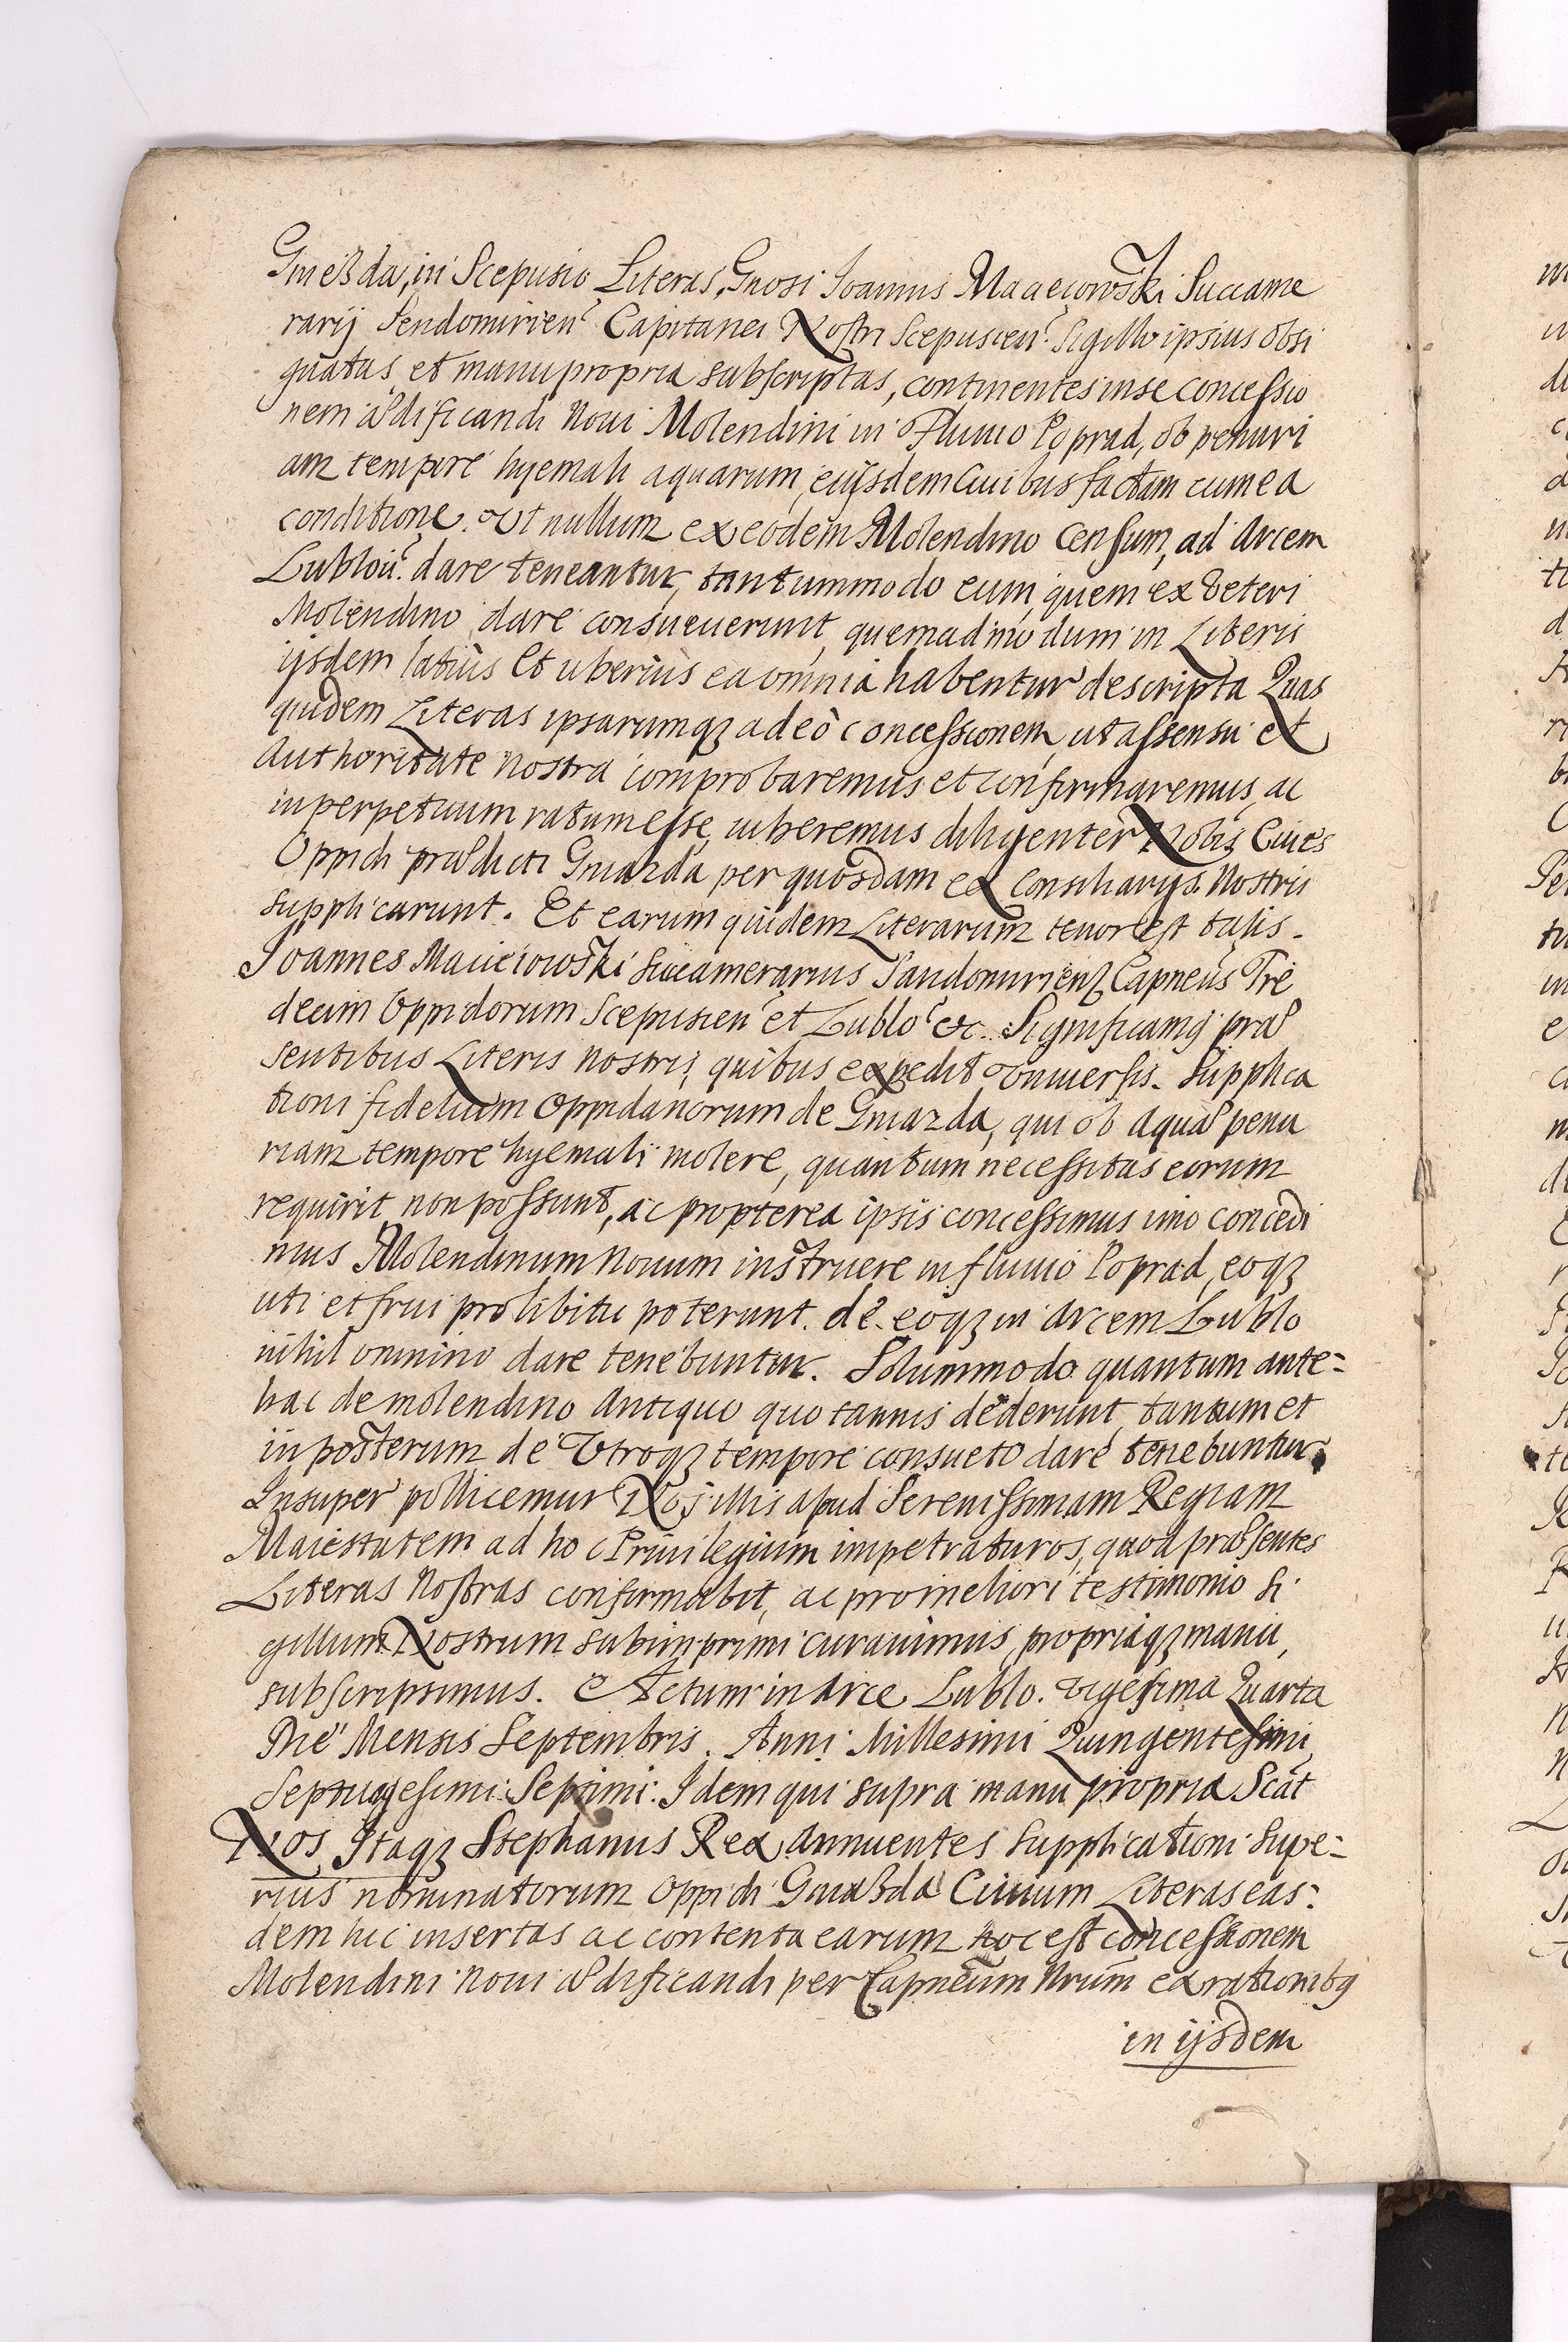 Gnießda, in Scepusio Literas, Gnosi Joannis Macieiowski Succame
rarij Sendomirien Capitanei Nostri Scepusien Sigillo ipsius obsi
gnatas et manu propria subscriptas, continentes in se Concessio
nem ædificandi Noui Molendini in Fluuio Poprad, ob penuri
am tempore hyemali aquarum, eijsdem Ciuibus factam cum ea
conditione. Ut nullum ex eodem Molendino Censum, ad Arcem
Lublou dare teneantur, tantummodo eum quem ex Veteri
Molendino dare consueuerunt, quemadmodum in Literis
ijsdem latius Et uberius ea omnia habentur descripta Quas
quidem Literas ipsarumq adeò concessionem, ut assensu et
Authoritate nostra comprobaremus et confirmaremus, ac
in perpetuum ratum esse, iuberemus diligenter Nobis Ciues
Oppidi prædicti Gniazda per quosdam ex Consiliarijs Nostris
supplicarunt. Et earum quidem Literarum tenor est talis.
Joannes Macieiowski Succamerarius Sandomirien Capneus Tre
decim Oppidorum Scepusien et Lublo etc. Significamq præ
sentibus Literis nostris, quibus expedit Vniuersis. Supplica
tioni fidelium Oppidanorum de Gniazda, qui ob aquæ penu
riam tempore hyemali molere, quantum necessitas eorum
requirit non possunt, ac propterea ipsis concessimus imo concedi
mus Molendinum Nouum instruere in fluuio Poprad, eoq
uti et frui pro libitu poterunt. de eoq in Arcem Lublo
nihil omnino dare tenebuntur. Solummodo quantum ante=
hac de molendino Antiquo quotannis dederunt tantum et
in posterum de Vtroq tempore consueto dare tenebuntur.
Insuper pollicemur Nos illis apud Serenissimam Regiam
Maiestatem ad hoc Priuilegium impetraturos, quod præsentes
Literas Nostras confirmabit, ac pro meliori testimonio Si
gillum Nostrum subimprimi curauimus, propriaq manu,
subscripsimus. Actum in Arce Lublo. Vigesima Quarta
Die Mensis Septembris. Anni Millesimi Quingentesimi
Septuagesimi Septimi: Idem qui supra manu propria Scat
Nos Itaq Stephanus Rex Annuentes Supplicationi Supe=
rius nominatorum Oppidi Gniaßda Ciuium Literas eas=
dem hic insertas ac contenta earum hoc est concessionem
Molendini Noui ædificandi per Capneum Nrum ex rationibq
in ijsdem